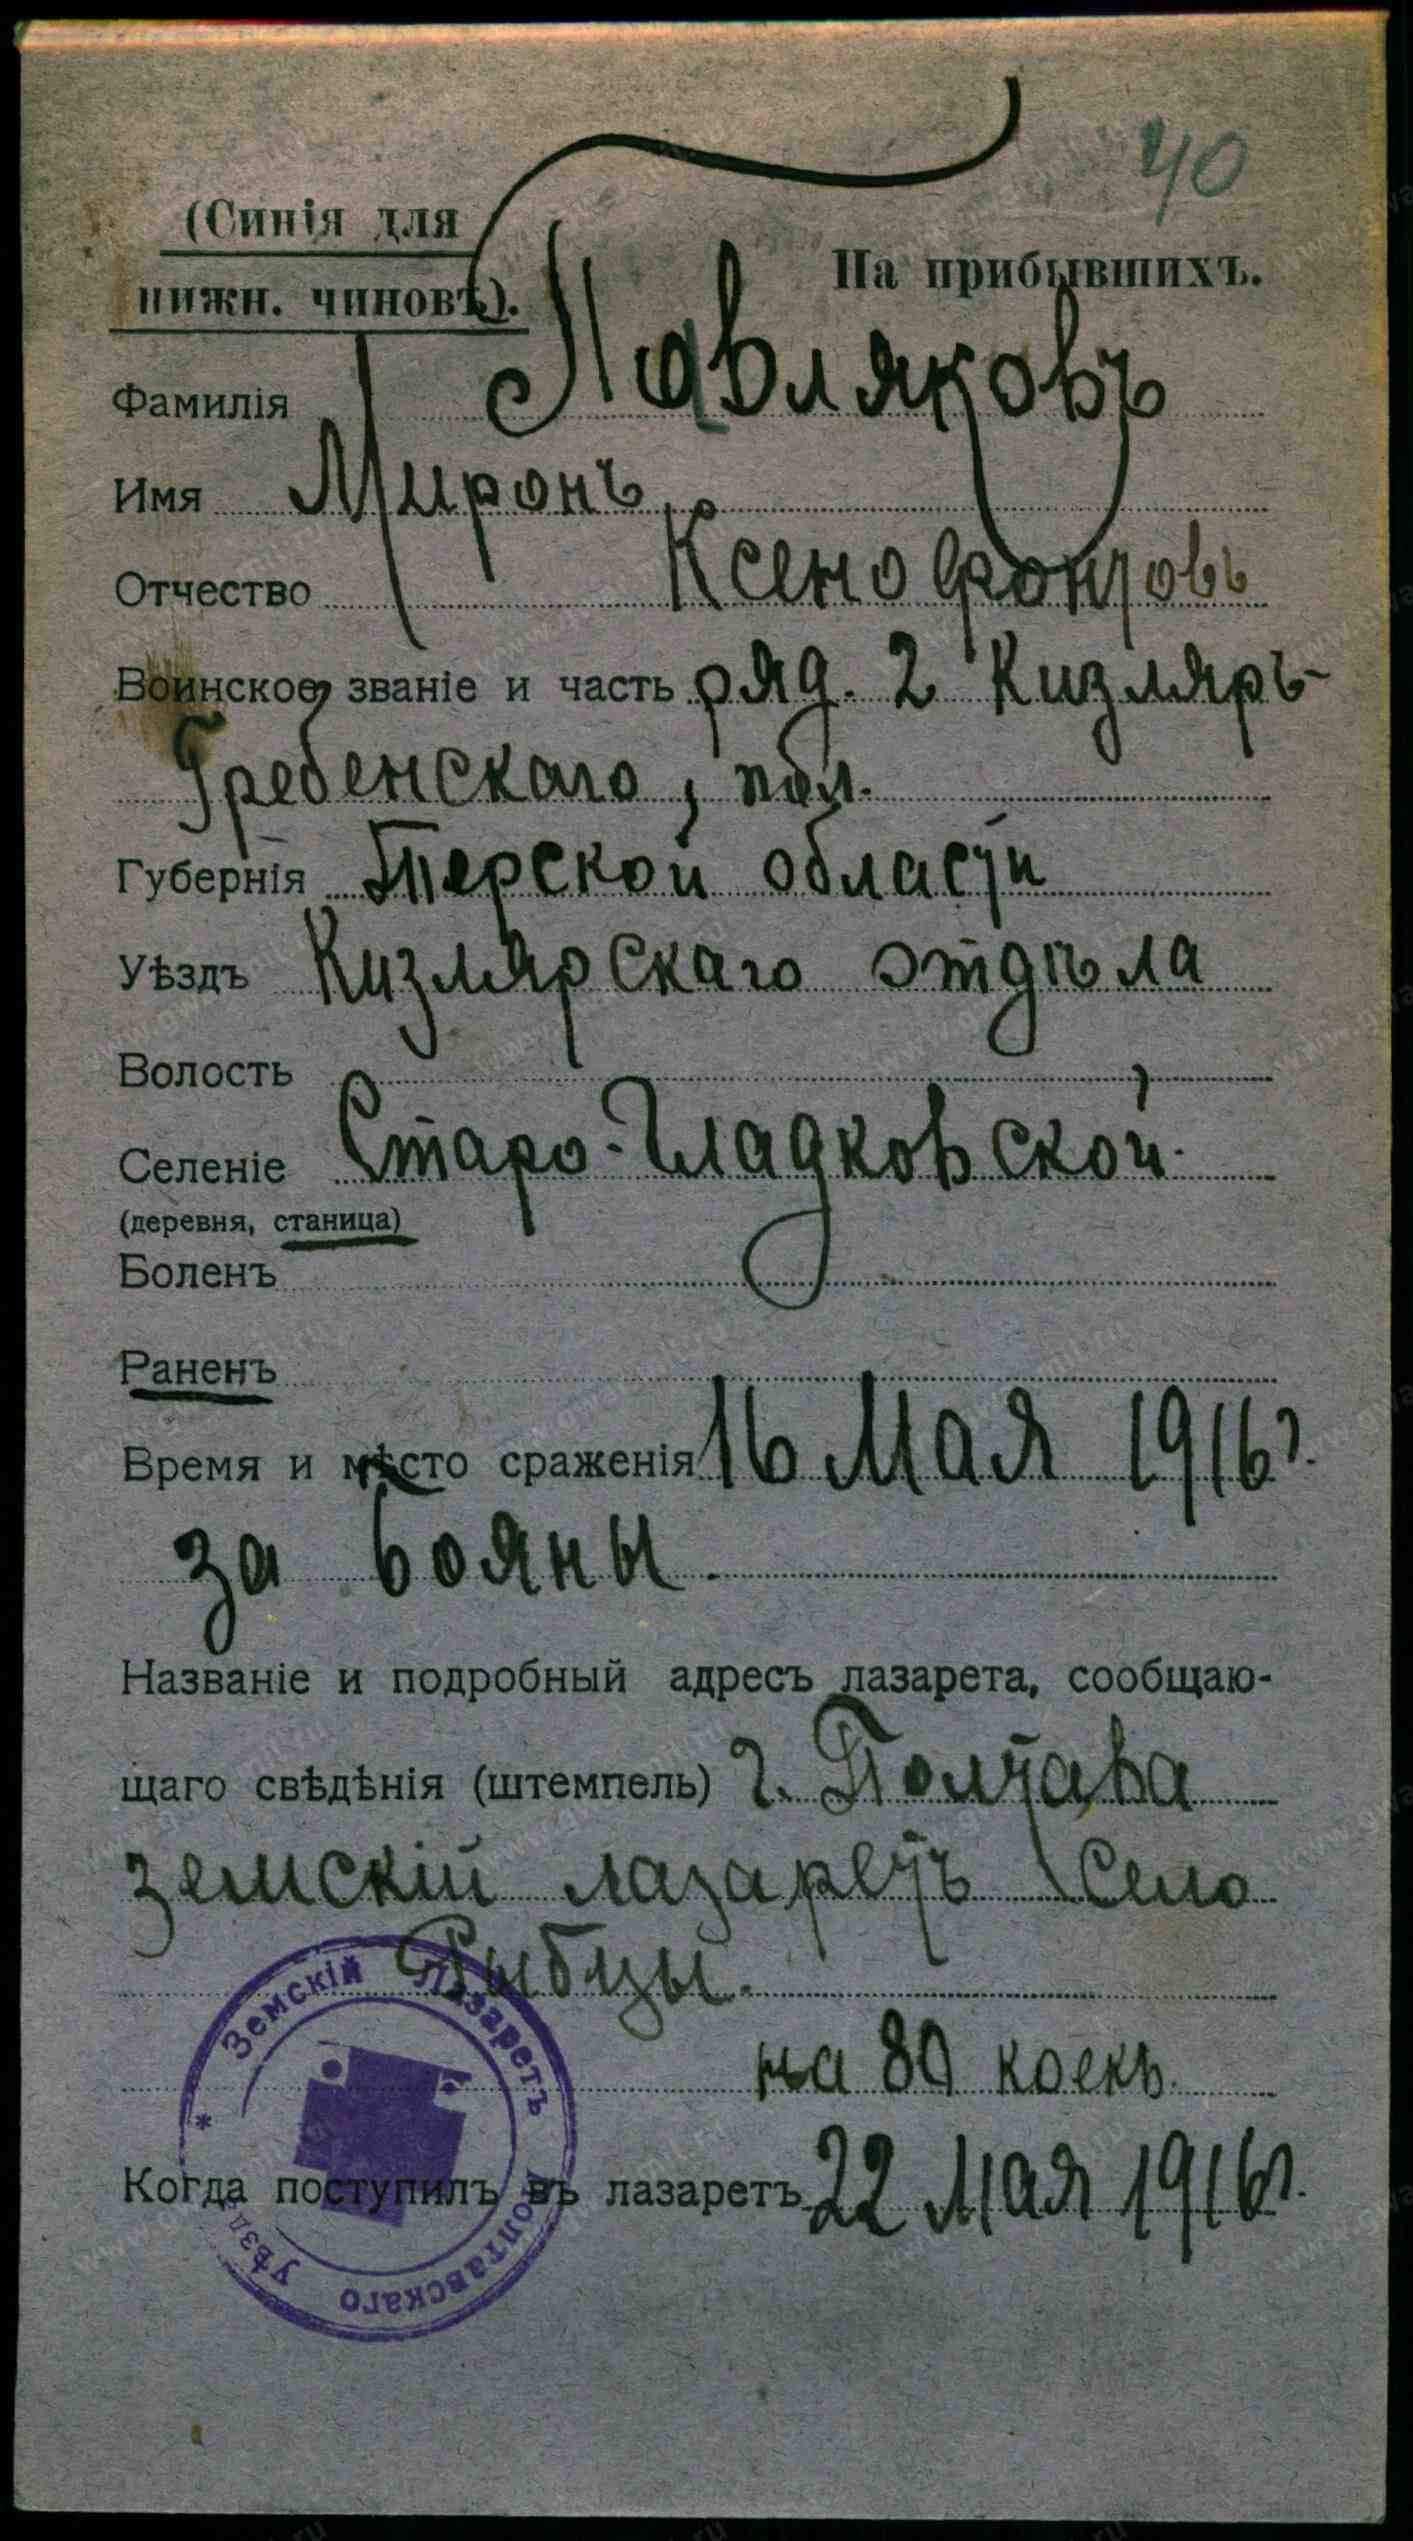 40
(Синія для
нижн. чиновъ).
На прибывшихъ.
Фамилія Павляковъ
Имя Миронъ
Отчество Ксенофонтовъ
Воинское званіе и часть ряд. 2 Кизляръ-
Гребенскаго, пол.
Губернія Терской области
Уѣздъ Кизлярскаго отдѣла
Волость
Селеніе Старо-Гладковской.
(деревня, станица)
Боленъ
Раненъ
Время и мѣсто сраженія 16 Мая 1916 г.
за Бояны.
Названіе и подробный адресъ лазарета, сообщаю-
щаго свѣдѣнія (штемпель) г. Полтава
земскій лазаретъ Село
Рыбцы.
на 80 коекъ.
Когда поступилъ въ лазаретъ 22 мая 1916 г.
* Земскій Лазаретъ Полтавскаго Уѣзд